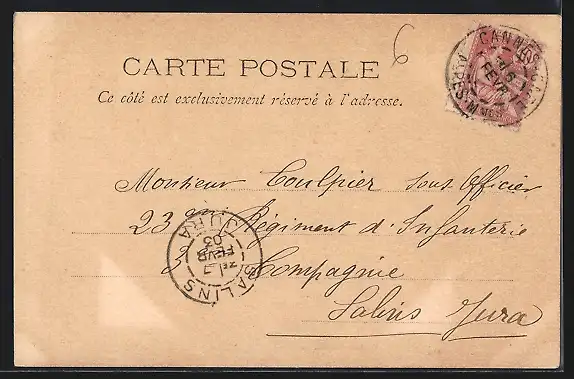 6
CARTE POSTALE
Ce côté est exclusivement réservé à l'adresse.
Monsieur Coulpier Sous Officier
23 ième Régiment d'Infanterie
2 Compagnie
Salins Jura
CANNES
FEVR
SALINS
JURA
7
FEVR
03